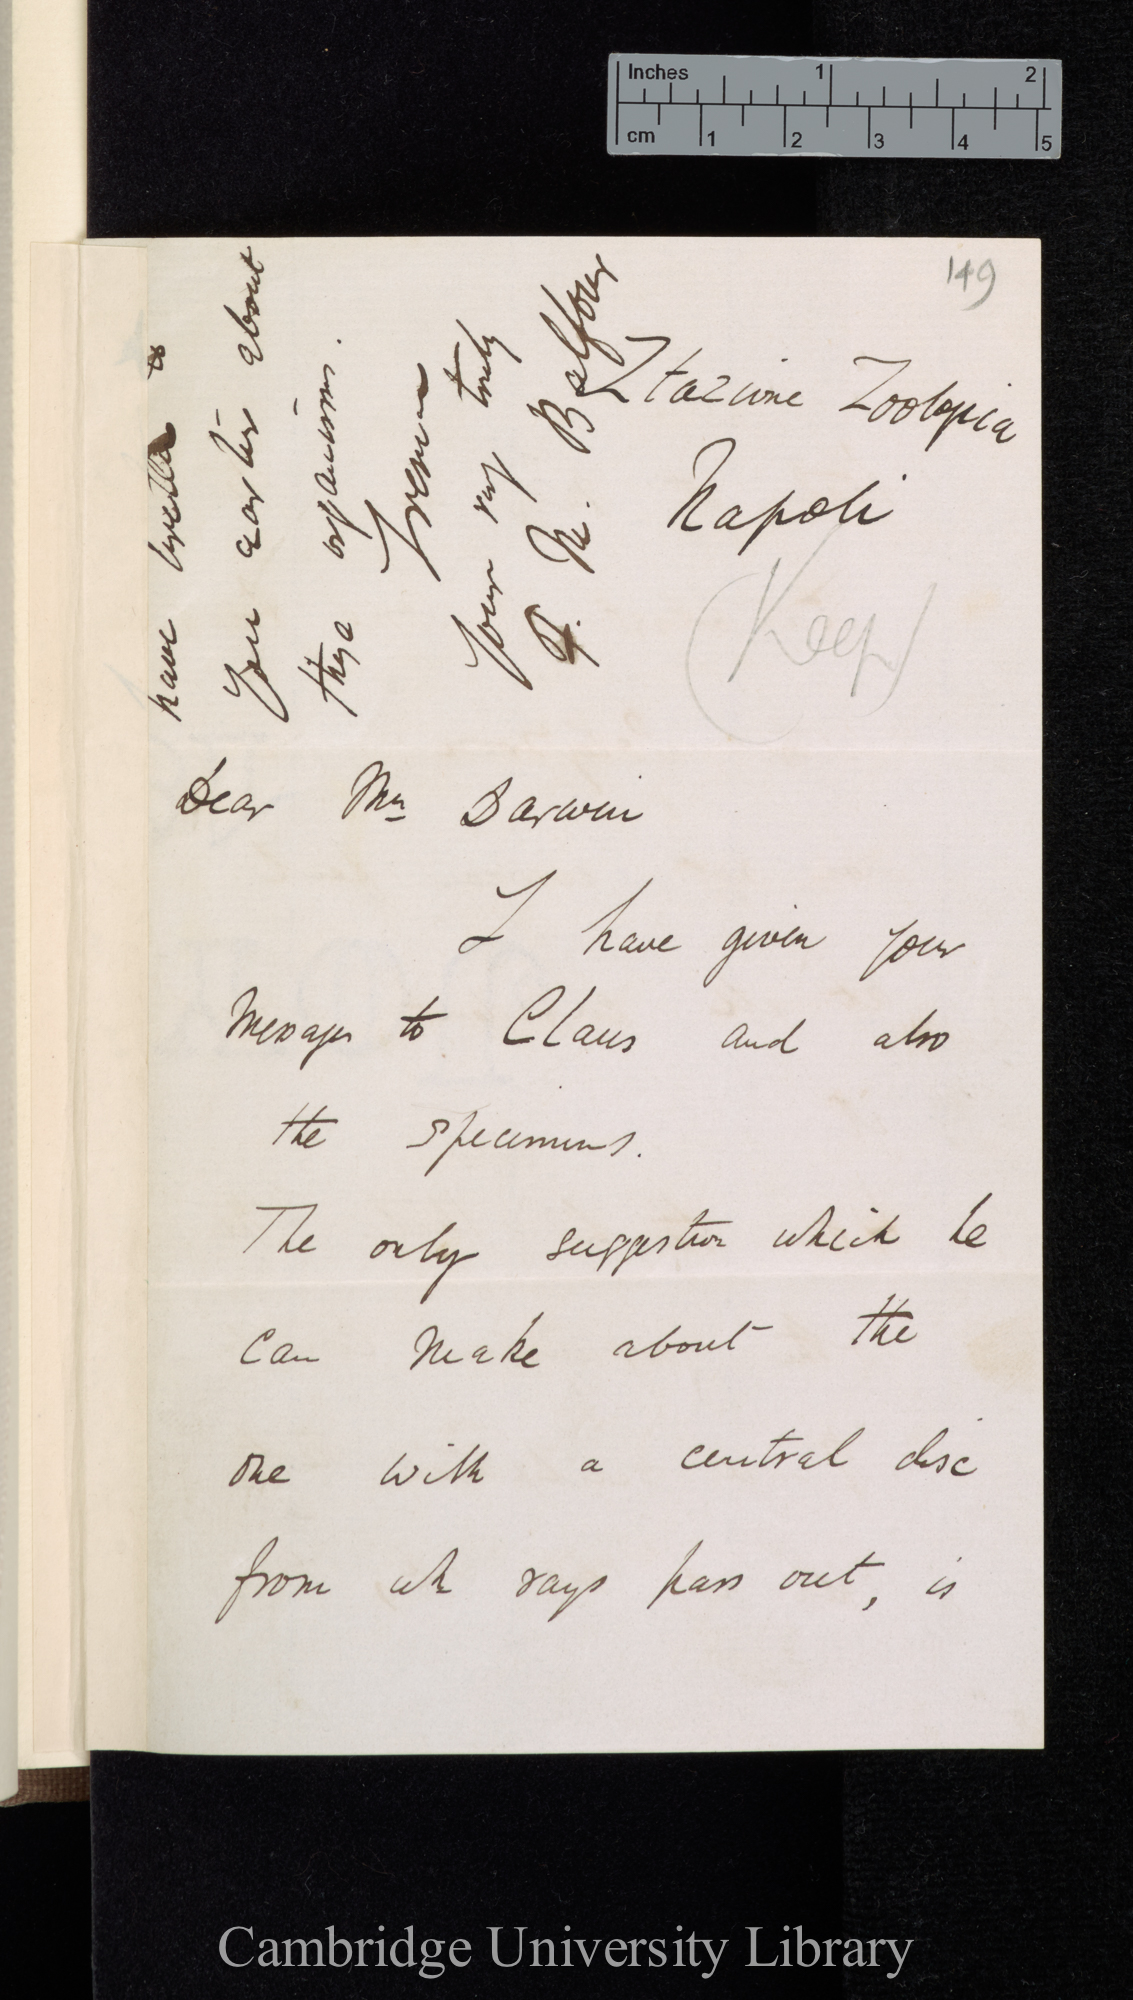 Inches 1 2
cm 1 2 3 4 5
149
Ztazione Zoologica
Napoli
(Keep)
Dear Mr Darwin
I have given your
messages to Claus and also
the specimens.
The only suggestion which he
can make about the
one with a central disc
from wh rays pass out, is
have written to
you earlier about
these organisms.
I remain
Yours very truly
F. M. Balfour
Cambridge University Library